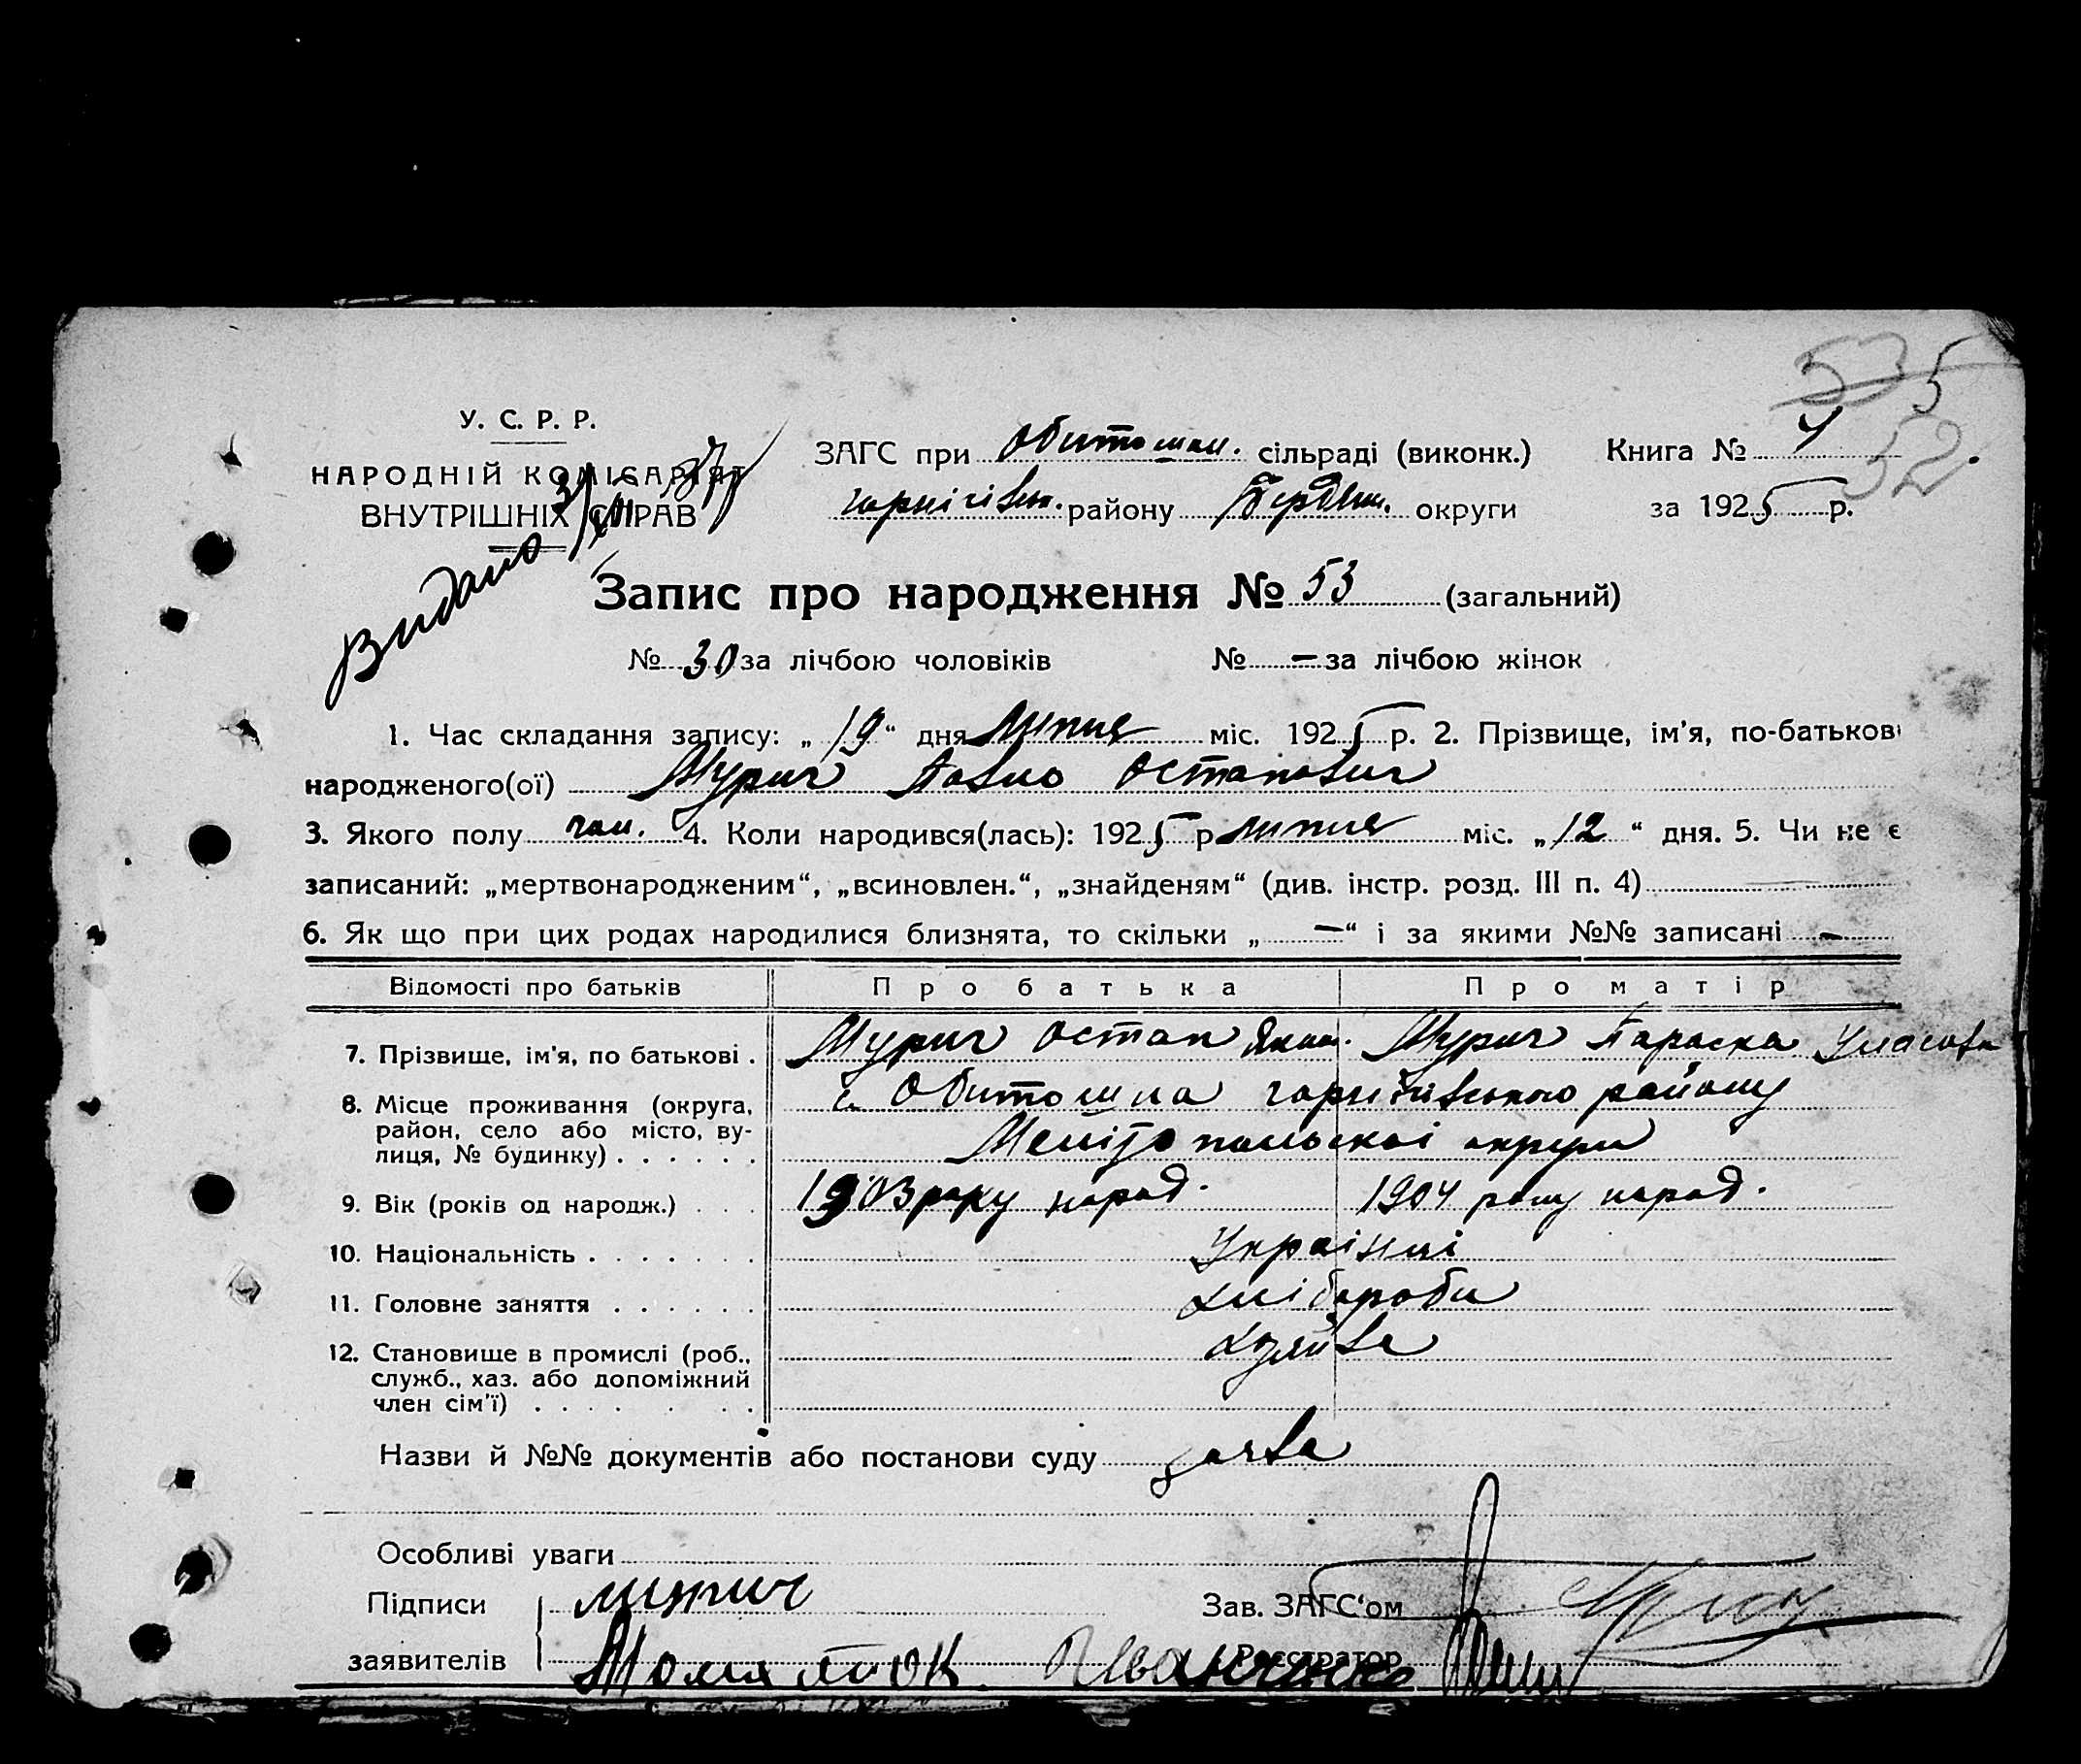 535
52.
У. С. Р. Р.
НАРОДНІЙ КОМІСАРІЯТ
ВНУТРІШНІХ СПРАВ
Видано
ЗАГС при Обиточан. сільраді (виконк.)
Чернігівськ. району Бердян. округи
Книга № 4
за 1925 р.
Запис про народження № 53 (загальний)
№ 30 за лічбою чоловіків № – за лічбою жінок
1. Час складання запису: „19“ дня липня міс. 1925 р. 2. Прізвище, ім'я, по-батькові
народженого(ої) Мурич Павло Остапович
3. Якого полу чол. 4. Коли народився(лась): 1925 р липня міс. „12“ дня. 5. Чи не є
записаний: „мертвонародженим“, „всиновлен.“, „знайденям“ (див. інстр. розд. III п. 4)
6. Як що при цих родах народилися близнята, то скільки „–“ і за якими №№ записані –
Відомості про батьків Про батька Про матір
7. Прізвище, ім'я, по батькові . Мурич Остап Яким. Мурич Параска Уласова
8. Місце проживання (округа, с. Обиточна Чернігівського району
район, село або місто, ву-
лиця, № будинку) . . . . . . Мелітопольскої округи
9. Вік (років од народж.) . . . 1903 року народ. 1904 року народ.
10. Національність . . . . . . . Українці
11. Головне заняття . . . . . . Хлібороби
12. Становище в промислі (роб.. Хазяйва
служб., хаз. або допоміжний
член сім'ї) . . . . . . . .
Назви й №№ документів або постанови суду заява
Особливі уваги
Підписи Мурич Зав. ЗАГС'ом
заявителів Реєстратор